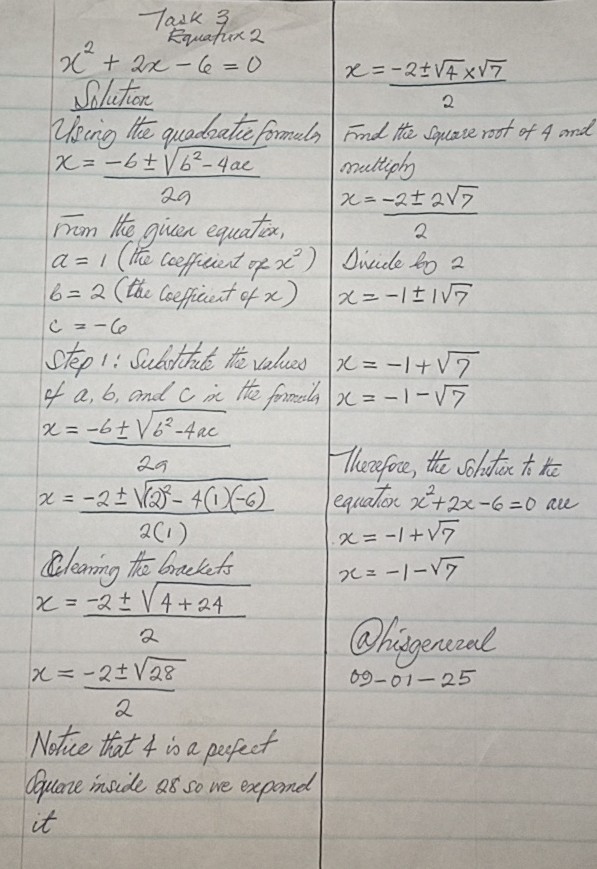 Task 3
Equation 2
x² + 2x - 6 = 0
Solution
Using the quadratic formula
x = -b ± √b² - 4ac
2a
From the given equation,
a = 1 (the coefficient of x²)
b = 2 (the coefficient of x)
c = -6
Step 1: Substitute the values
of a, b, and c in the formula
x = -b ± √b² - 4ac
2a
x = -2 ± √(2)² - 4(1)(-6)
2(1)
Clearing the brackets
x = -2 ± √4 + 24
2
x = -2 ± √28
2
Notice that 4 is a perfect
square inside 28 so we expand
it
x = -2 ± √4 × √7
2
Find the square root of 4 and
multiply
x = -2 ± 2√7
2
Divide by 2
x = -1 ± 1√7
x = -1 + √7
x = -1 - √7
Therefore, the solution to the
equation x² + 2x - 6 = 0 are
x = -1 + √7
x = -1 - √7
@hisgeneral
09-01-25